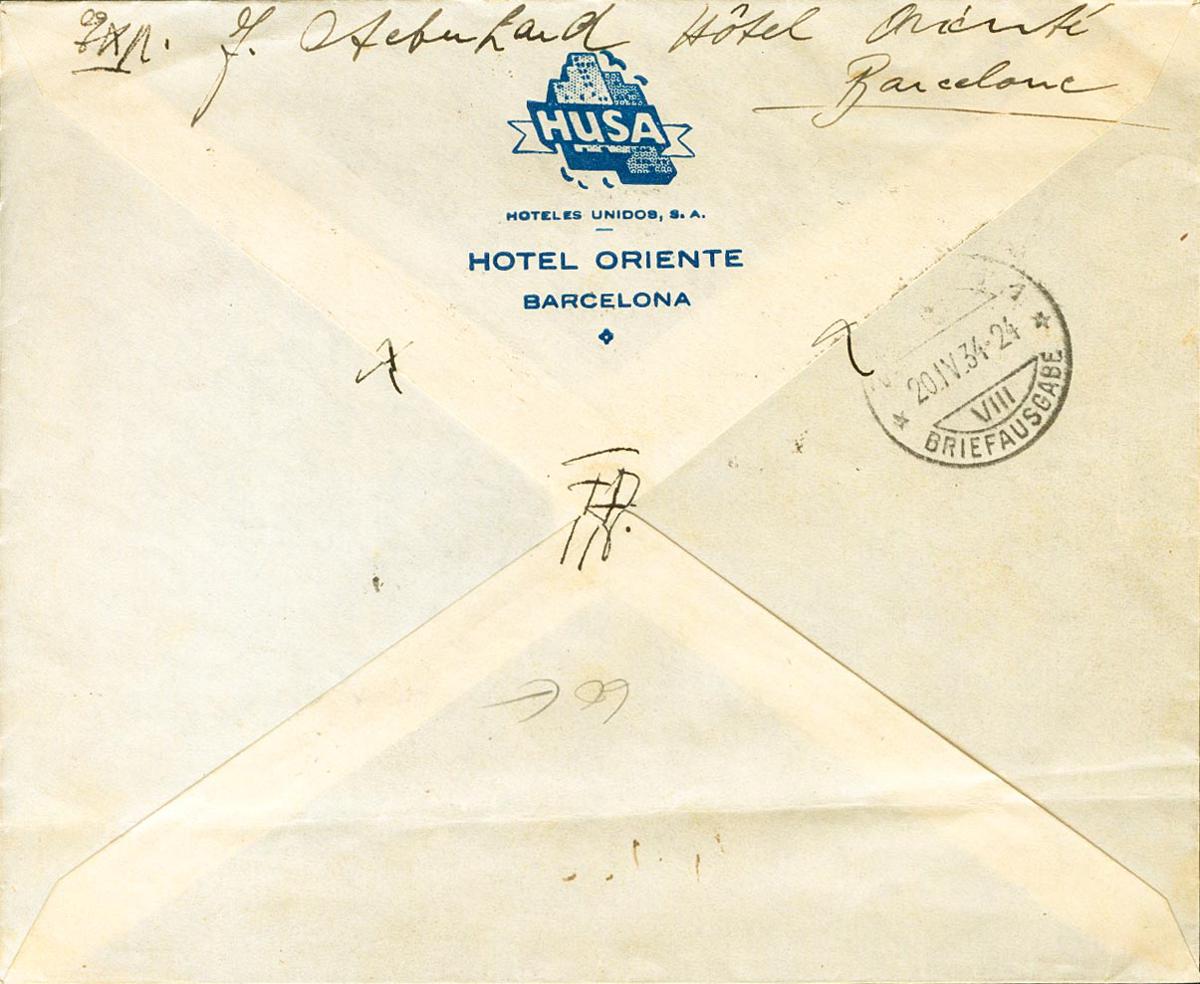 Exp. J. Aeberhard Hôtel Orienté
Barcelone
HUSA
HOTELES UNIDOS, S. A.
HOTEL ORIENTE
BARCELONA
20.IV.34-24
VIII
BRIEFAUSGABE